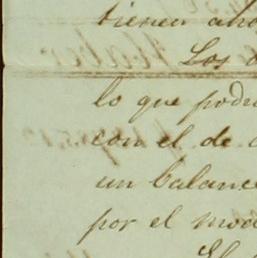 tienen aho
Los
lo que podr
con el de
un balance
por el mod
El